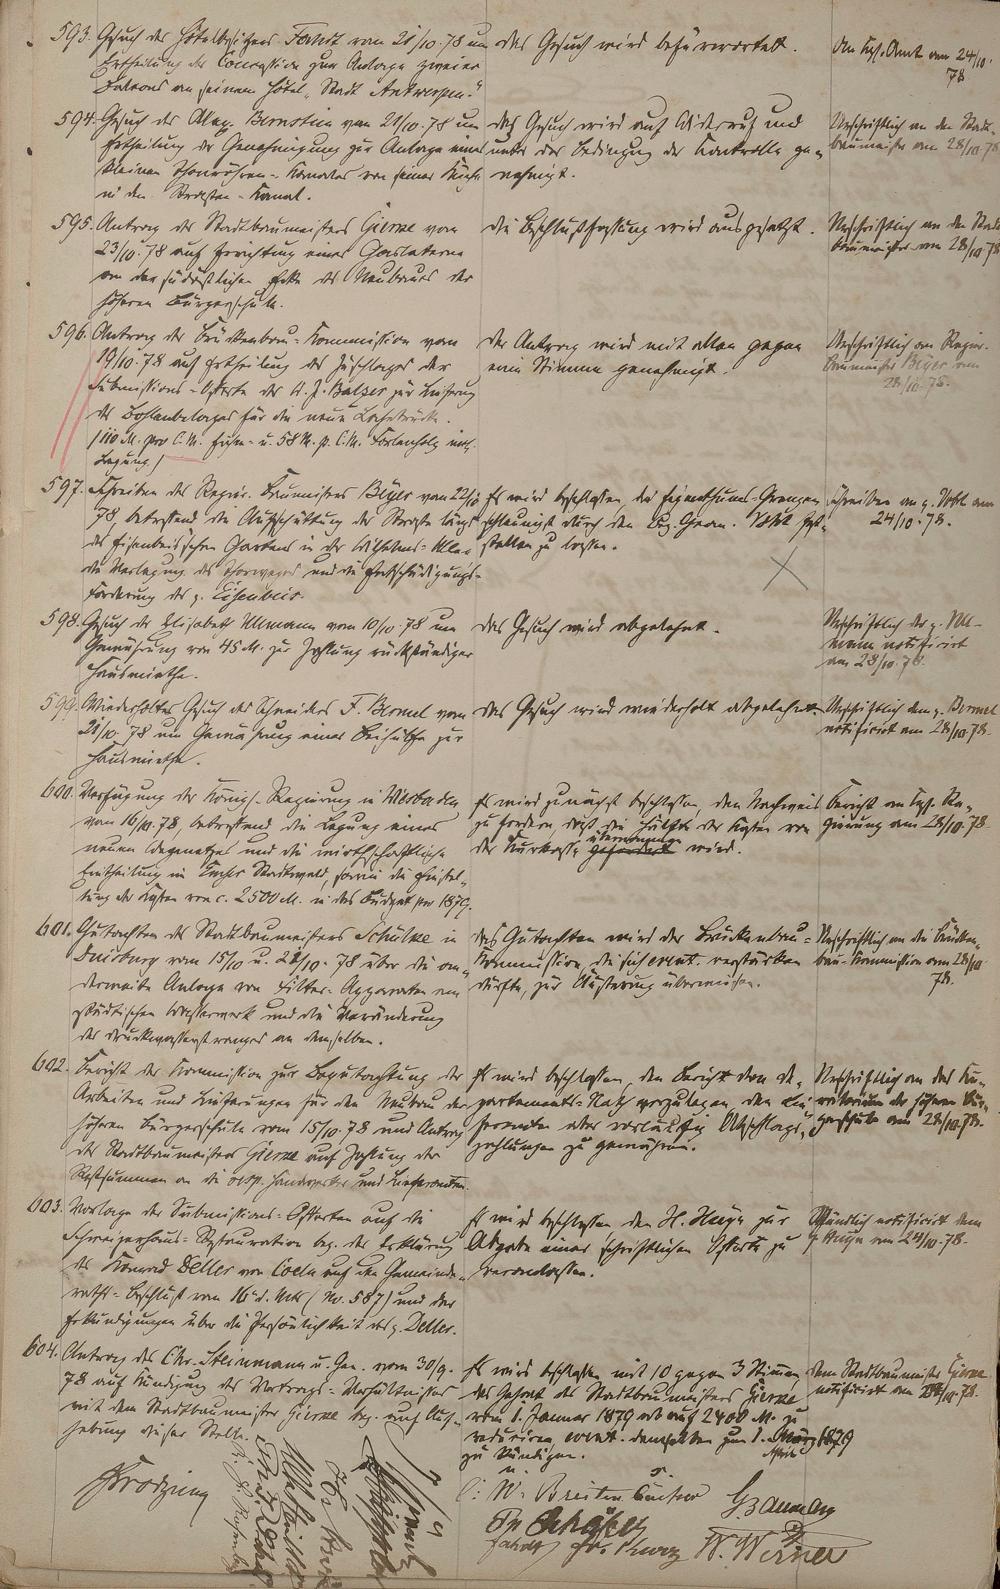 593. Gesuch des Hôtelbesitzers Fandt vom 21/10.78 um
Ertheilung der Concession zur Anlage zweier
Balcons an seinem Hôtel „Stadt Antwerpen."
das Gesuch wird befürwortet.
dem Kgl. Amt am 24/10.
78
594. Gesuch des Alex. Bernstein vom 21/10.78 um
Ertheilung der Genehmigung zur Anlage eines
kleinen Thonröhren-Kanales von seiner Küche
in den Strassen-Kanal.
das Gesuch wird auf Widerruf und
unter der Bedingung der Kontrolle ge-
nehmigt.
Urschriftlich an den Stadt-
baumeister am 28/10.78
595. Antrag des Stadtbaumeisters Gierne vom
23/10.78 auf Errichtung einer Gaslaterne
an der südöstlichen Ecke des Neubaues der
höheren Bürgerschule.
die Beschlußfassung wird ausgesetzt.
Urschriftlich an den Stadt
baumeister am 28/10.78
596. Antrag der Brückenbau-Kommission vom
19/10.78 auf Ertheilung des Zuschlages der
Submissions-Offerte des H. J. Balzer zur Lieferung
des Bohlenbelages für die neue Lahnbrücke.
(110 M. pro C.M. Eichen- u. 58 M. p. C.M. Forlenholz incl.
Legung)
der Antrag wird mit allen gegen
eine Stimme genehmigt.
Urschriftlich an Regier.
Baumeister Beyer am
28/10.78.
597. Schreiben des Regier. Baumeisters Beyer vom 22/10
78, betreffend die Aufschüttung der Strasse längs
des Eisenbeis'schen Gartens in der Wilhelms-Allee
die Verlegung des Thorweges und die Entschädigungs-
forderung des p. Eisenbeis.
Es wird beschlossen, die Eigenthums-Grenzen
schleunigst durch den Geom. Vohl fest-
stellen zu lassen.
Schreiben an p. Vohl am
24/10.78.
598. Gesuch der Elisabeth Ullmann vom 10/10.78 um
Gewährung von 45 M. zur Zahlung rückständiger
Hausmiethe.
das Gesuch wird abgelehnt.
Urschriftlich der p. Ull-
mann notificirt
am 28/10.78.
599. Wiederholtes Gesuch des Schneiders F. Bermel vom
21/10.78 um Gewährung einer Beihülfe zur
Hausmiethe.
das Gesuch wird wiederholt abgelehnt.
Urschriftlich dem p. Bermel
notificirt am 28/10.78.
600. Verfügung der Königl. Regierung in Wiesbaden
vom 16/10.78, betreffend die Legung eines
neuen Wegenetzes und die wirthschaftliche
Eintheilung im Emser Stadtwald, sowie die Einstel-
lung der Kosten von c. 2500 M. in das Budget pro 1879.
Es wird zunächst beschlossen, den Nachweis
zu fordern, daß die Hälfte der Kosten von
der Kurkasse wird.
Bericht an Kgl. Re-
gierung am 28/10.78
601. Gutachten des Stadtbaumeisters Schülke in
Duisburg vom 15/10 u. 21/10.78 über die an-
derweite Anlage von Filter-Apparaten am
städtischen Wasserwerk und die Veränderung
des Druckwasserstranges an demselben.
das Gutachten wird der Brückenbau-
Kommission, die sich event. verstärken
dürfte, zur Äußerung überwiesen.
Urschriftlich an die Brücken-
bau-Kommission am 28/10
78.
602. Bericht der Kommission zur Begutachtung der
Arbeiten und Lieferungen für den Neubau der
höheren Bürgerschule vom 15/10.78 und Antrag
des Stadtbaumeisters Gierne auf Zahlung der
Restsummen an die resp. Handwerker und Lieferanten.
Es wird beschlossen, den Bericht dem De-
partements-Rath vorzulegen, den Lie-
feranten aber vorläufig Abschlags-
zahlungen zu gewähren.
Urschriftlich an das Ku-
ratorium der höheren Bür-
gerschule am 28/10.78.
603. Vorlage der Submissions-Offerten auf die
Schweizerhaus-Restauration bez. der Erklärung
des Konrad Deller von Coeln auf den Gemeinde-
raths-Beschluß vom 16. d. Mts (No. 587) und der
Erkundigungen über die Persönlichkeit des p. Deller.
Es wird beschlossen den H. Huyn zur
Abgabe einer schriftlichen Offerte zu
veranlassen.
Mündlich notificirt dem
p. Huyn am 24/10.78.
604. Antrag des Chr. Steinmann u. Gen. vom 30/9.
78 auf Kündigung des Vertrags-Verhältnisses
mit dem Stadtbaumeister Gierne bez. auf Auf-
hebung dieser Stelle.
Es wird beschlossen mit 10 gegen 3 Stimmen
das Gehalt des Stadtbaumeisters Gierne
vom 1. Januar 1879 ab auf 2400 M. zu
reduciren event. demselben zum 1. 1879
zu kündigen.
dem Stadtbaumeister Gierne
notificirt am 28/10.78.
W. Werner